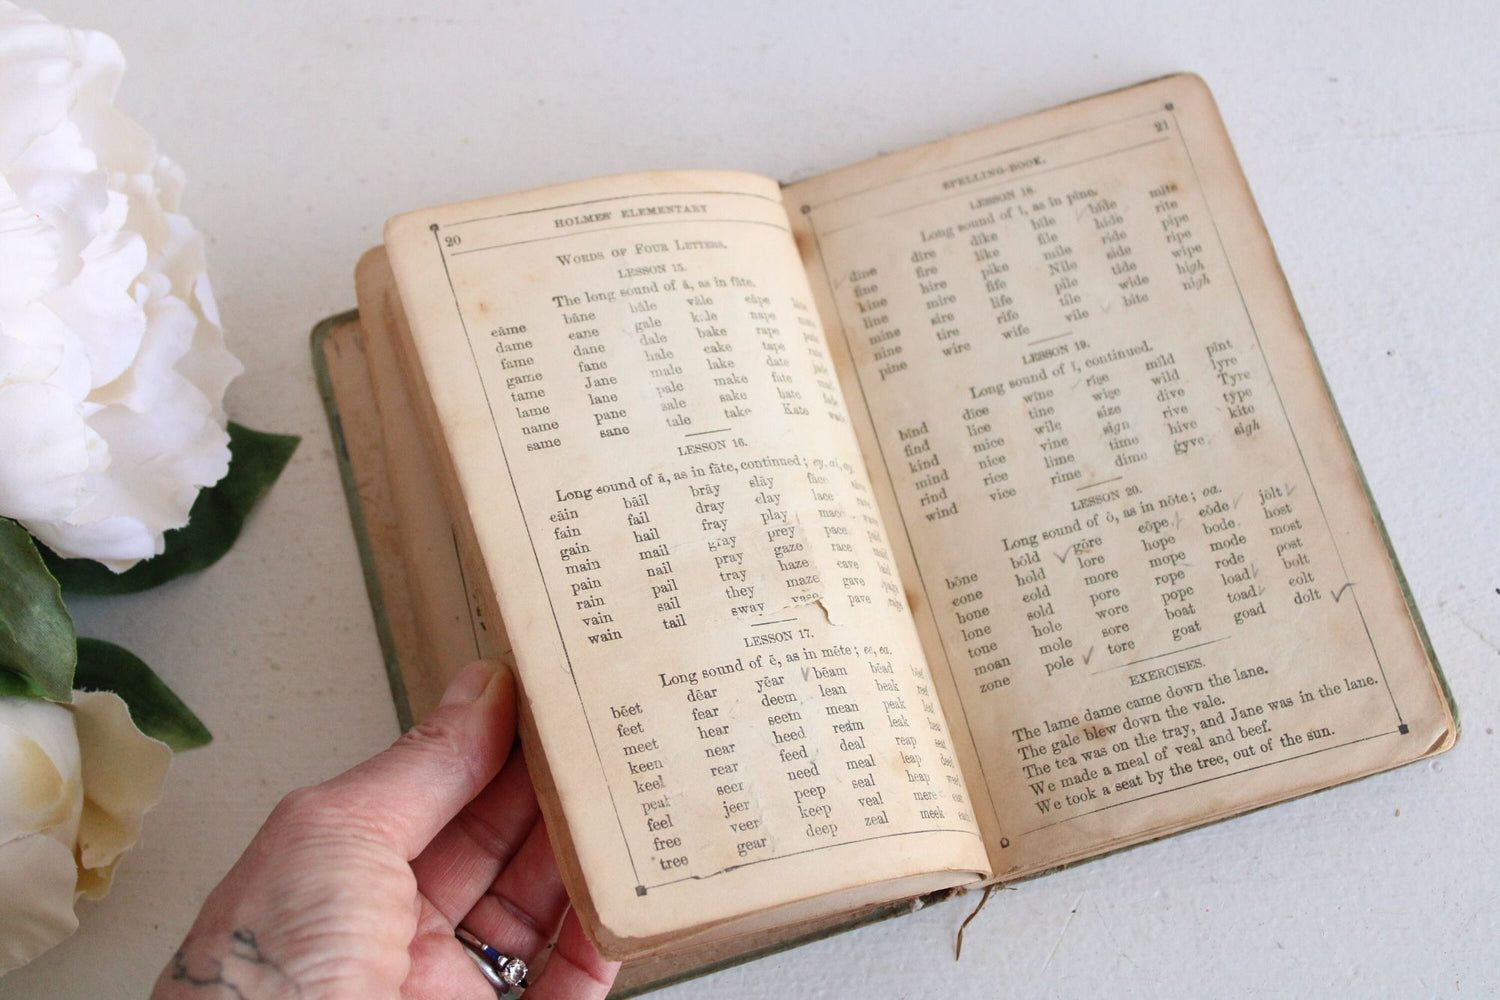 20
HOLMES' ELEMENTARY
WORDS OF FOUR LETTERS.
LESSON 15.
The long sound of ā, as in fāte.
cāme bāne bāle vāle cāpe
dame cane gale kale nape
fame dane dale bake rape
game fane hale cake tape
tame Jane male lake date
lame lane pale make fate
name pane sale sake hate
same sane tale take Kate
LESSON 16.
Long sound of ā, as in fāte, continued; ey, ai, ay.
cāin bāil brāy slāy fāce
fain fail dray clay lace
gain hail fray play
main mail gray prey pace
pain nail pray gaze race
rain pail tray haze cave
vain sail they maze gave
wain tail sway vase pave
LESSON 17.
Long sound of ē, as in mēte; ee, ea.
bēet dēar yēar bēam bēad
feet fear deem lean beak
meet hear seem mean peak
keen near heed ream leak
keel rear feed deal reap
peak seer need meal leap
feel jeer peep seal heap
free veer keep veal mere
tree gear deep zeal meek
SPELLING-BOOK.
21
LESSON 18.
Long sound of ī, as in pīne.
dīne dīre dīke bīle bīde mīte
fine fire like file hide rite
kine hire pike mile ride pipe
line mire fife Nile side ripe
mine sire life pile tide wipe
nine tire rife tile wide high
pine wire wife vile bite nigh
LESSON 19.
Long sound of ī, continued.
bīnd dīce wīne rīse mīld pīnt
find lice tine wise wild lyre
kind mice wile size dive Tyre
mind nice vine sign rive type
rind rice lime time hive kite
wind vice rime dime gyve sigh
LESSON 20.
Long sound of ō, as in nōte; oa.
bōne bōld gōre cōpe cōde jōlt
cone hold lore hope bode host
hone cold more mope mode most
lone sold pore rope rode post
tone hole wore pope load bolt
moan mole sore boat toad colt
zone pole tore goat goad dolt
EXERCISES.
The lame dame came down the lane.
The gale blew down the vale.
The tea was on the tray, and Jane was in the lane.
We made a meal of veal and beef.
We took a seat by the tree, out of the sun.